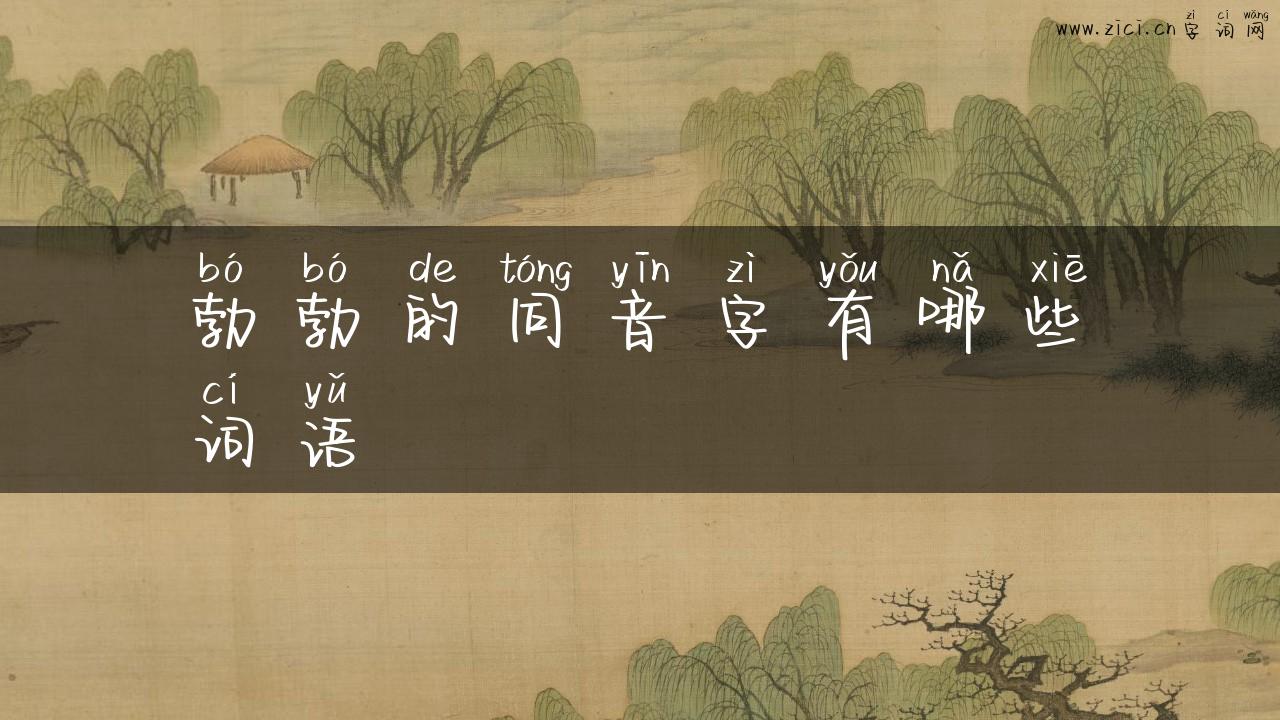 zì cí wǎng
www.zici.cn 字词网
bó bó de tóng yīn zì yǒu nǎ xiē
勃勃的同音字有哪些
cí yǔ
词语